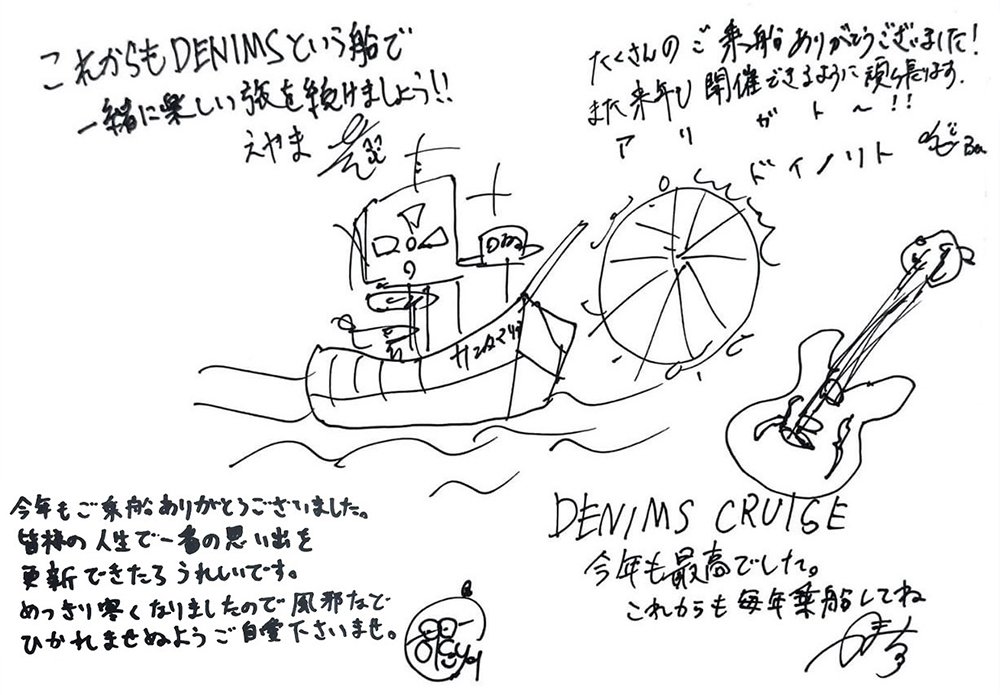 これからもDENIMSという船で
一緒に楽しい旅を続けましょう!!
えやま
たくさんのご乗船ありがとうございました!
また来年も開催できるように頑張ります.
アリガト〜!!
ドイノリト
サンタマリア
DENIMS CRUISE
今年も最高でした。
これからも毎年乗船してね
今年もご乗船ありがとうございました。
皆様の人生で一番の思い出を
更新できたらうれしいです。
めっきり寒くなりましたので風邪など
ひかれませぬようご自愛下さいませ。